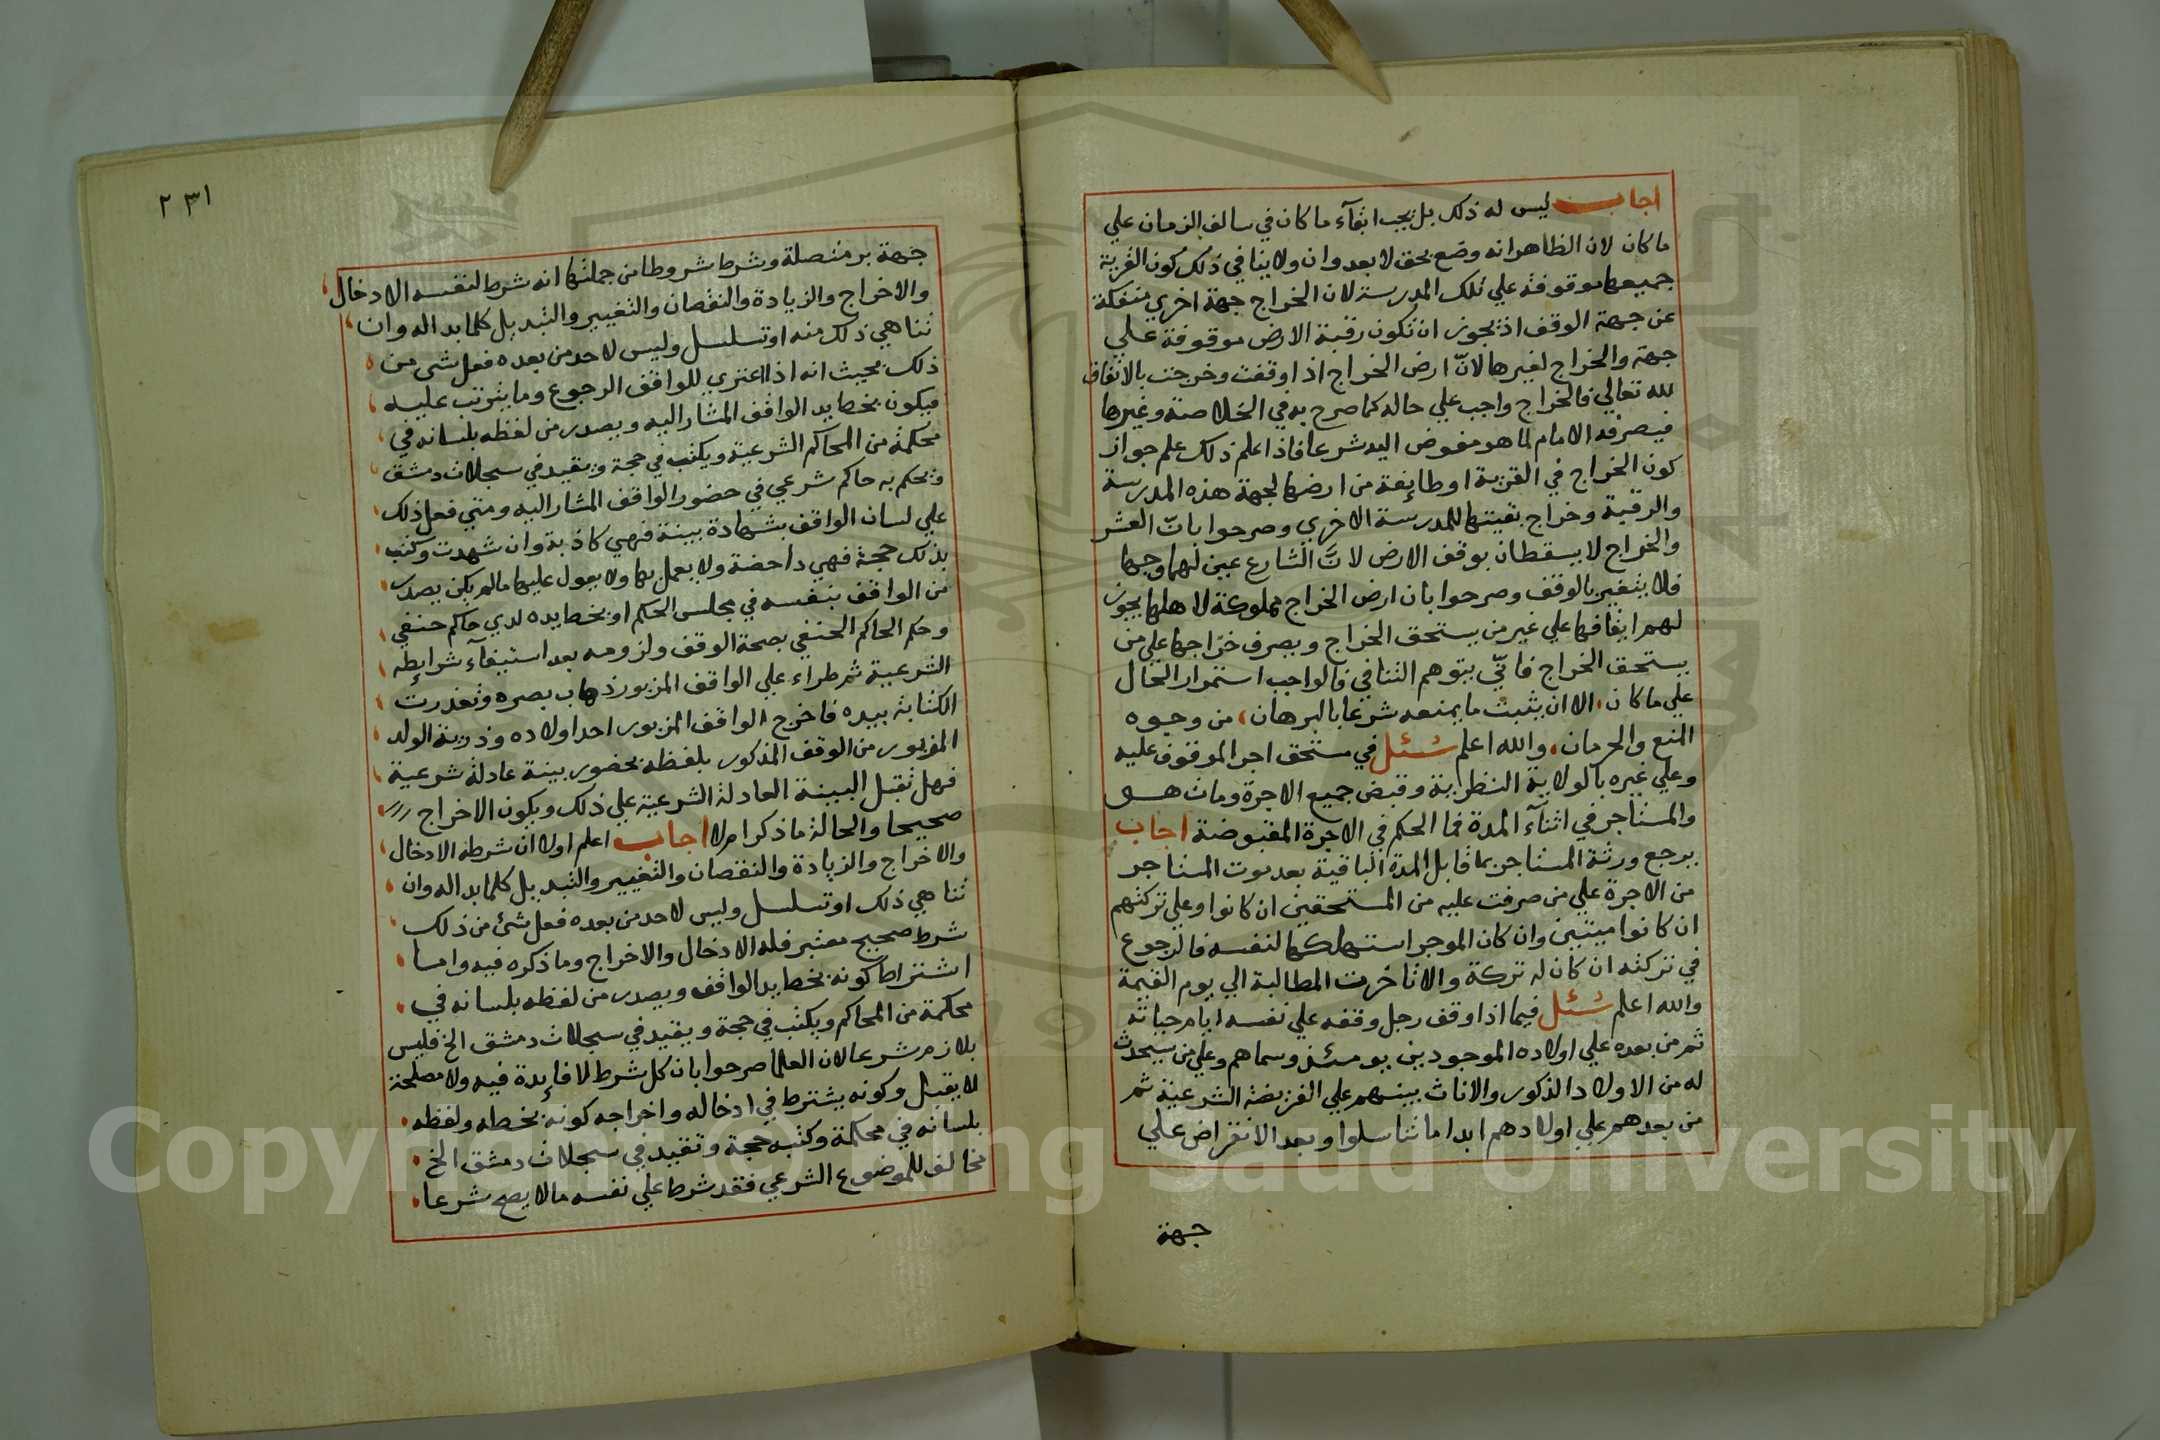 اجاب ليس له ذلك بل يجب ابقآء ما كان في سالف الزمان علي
ما كان لان الظاهر انه وضع بحق لا بعدوان ولا ينافي ذلك كون القرية
جميعها موقوفة علي تلك المدرسة لان الخراج جهة اخري منفكة
عن جهة الوقف اذ يجوز ان تكون رقبة الارض موقوفة علي
جهة والخراج لغيرها لانّ ارض الخراج اذا وقفت وخرجت بالاتفاق
لله تعالي فالخراج واجب علي حاله كما صرح به في الخلاصة وغيرها
فيصرفه الامام لما هو مفوض اليه شرعا فاذا علم ذلك علم جواز
كون الخراج في القرية او طائفة من ارضها لجهة هذه المدرسة
والرقبة وخراج بقيتها للمدرسة الاخري وصرحوا بانّ العشر
والخراج لا يسقطان بوقف الارض لانّ الشارع عين لهما وجها
فلا يتغير بالوقف وصرحوا بان ارض الخراج مملوكة لاهلها يجوز
لهم ايقافها علي غير من يستحق الخراج ويصرف خراجها علي من
يستحق الخراج فانّي يتوهم التنافي فالواجب استمرار الحال
علي ما كان الا ان يثبت ما يمنعه شرعا بالبرهان من وجوه
المنع والحرمان والله اعلم سُئل في مستحق اجر الموقوف عليه
وعلي غيره بالولاية النظرية وقبض جميع الاجرة ومات هو
والمستاجر في اثنآء المدة فما الحكم في الاجرة المقبوضة اجاب
يرجع ورثة المستاجر بما قابل المدة الباقية بعد موت المستاجر
من الاجرة علي من صرفت عليه من المستحقين ان كانوا وعلي تركتهم
ان كانوا ميتين وان كان الموجر استهلكها لنفسه فالرجوع
في تركته ان كان له تركة والا تاخرت المطالبة الي يوم القيمة
والله اعلم سُئل فيما اذا وقف رجل وقفه علي نفسه ايام حياته
ثم من بعده علي اولاده الموجودين يومئذ وسماهم وعلي من سيحدث
له من الاولاد الذكور والاناث بينهم علي الفريضة الشرعية ثم
من بعدهم علي اولادهم ابدا ما تناسلوا وبعد الانقراض علي
جهة
٢٣١
جهة بر متصلة وشرط شروطا من جملتها انه شرط لنفسه الادخال
والاخراج والزيادة والنقصان والتغيير والتبديل كلما بدا له وان
تناهي ذلك منه او تسلسل وليس لاحد من بعده فعل شي من
ذلك بحيث انه اذا اعتري للواقف الرجوع وما يترتب عليه
فيكون بخط يد الواقف المشار اليه ويصدر من لفظه بلسانه في
محكمة من المحاكم الشرعية ويكتب في حجة ويقيد في سجلات دمشق
ويحكم به حاكم شرعي في حضور الواقف المشار اليه ومتي فعل ذلك
علي لسان الواقف بشهادة بينة فهي كاذبة وان شهدت وكتب
بذلك حجة فهي داحضة ولا يعمل بها ولا يعول عليها ما لم يكن يصدر
من الواقف بنفسه في مجلس الحكم او بخط يده لدي حاكم حنفي
وحكم الحاكم الحنفي بصحة الوقف ولزومه بعد استيفآء شرايطه
الشرعية ثم طراء علي الواقف المزبور ذهاب بصره وتعذرت
الكتابة بيده فاخرج الواقف المزبور احد اولاده وذرية الولد
المزبور من الوقف المذكور بلفظه بحضور بينة عادلة شرعية
فهل تقبل البينة العادلة الشرعية علي ذلك ويكون الاخراج
صحيحا والحالة ما ذكر ام لا اجاب اعلم اولا ان شرطه الادخال
والاخراج والزيادة والنقصان والتغيير والتبديل كلما بدا له وان
تناهي ذلك او تسلسل وليس لاحد من بعده فعل شئ من ذلك
شرط صحيح معتبر فله الادخال والاخراج وما ذكره فيه واما
اشتراط كونه بخط يد الواقف ويصدر من لفظه بلسانه في
محكمة من المحاكم ويكتب في حجة ويقيد في سجلات دمشق الخ فليس
بلازم شرعا لان العلما صرحوا بان كل شرط لا فائدة فيه ولا مصلحة
لا يقبل وكونه يشترط في ادخاله واخراجه كونه بخطه ولفظه
بلسانه في محكمة وكتبه حجة وتقييد في سجلات دمشق الخ
مخالف للموضوع الشرعي فقد شرط علي نفسه ما لا يصح شرعا
Copyright © King Saud University